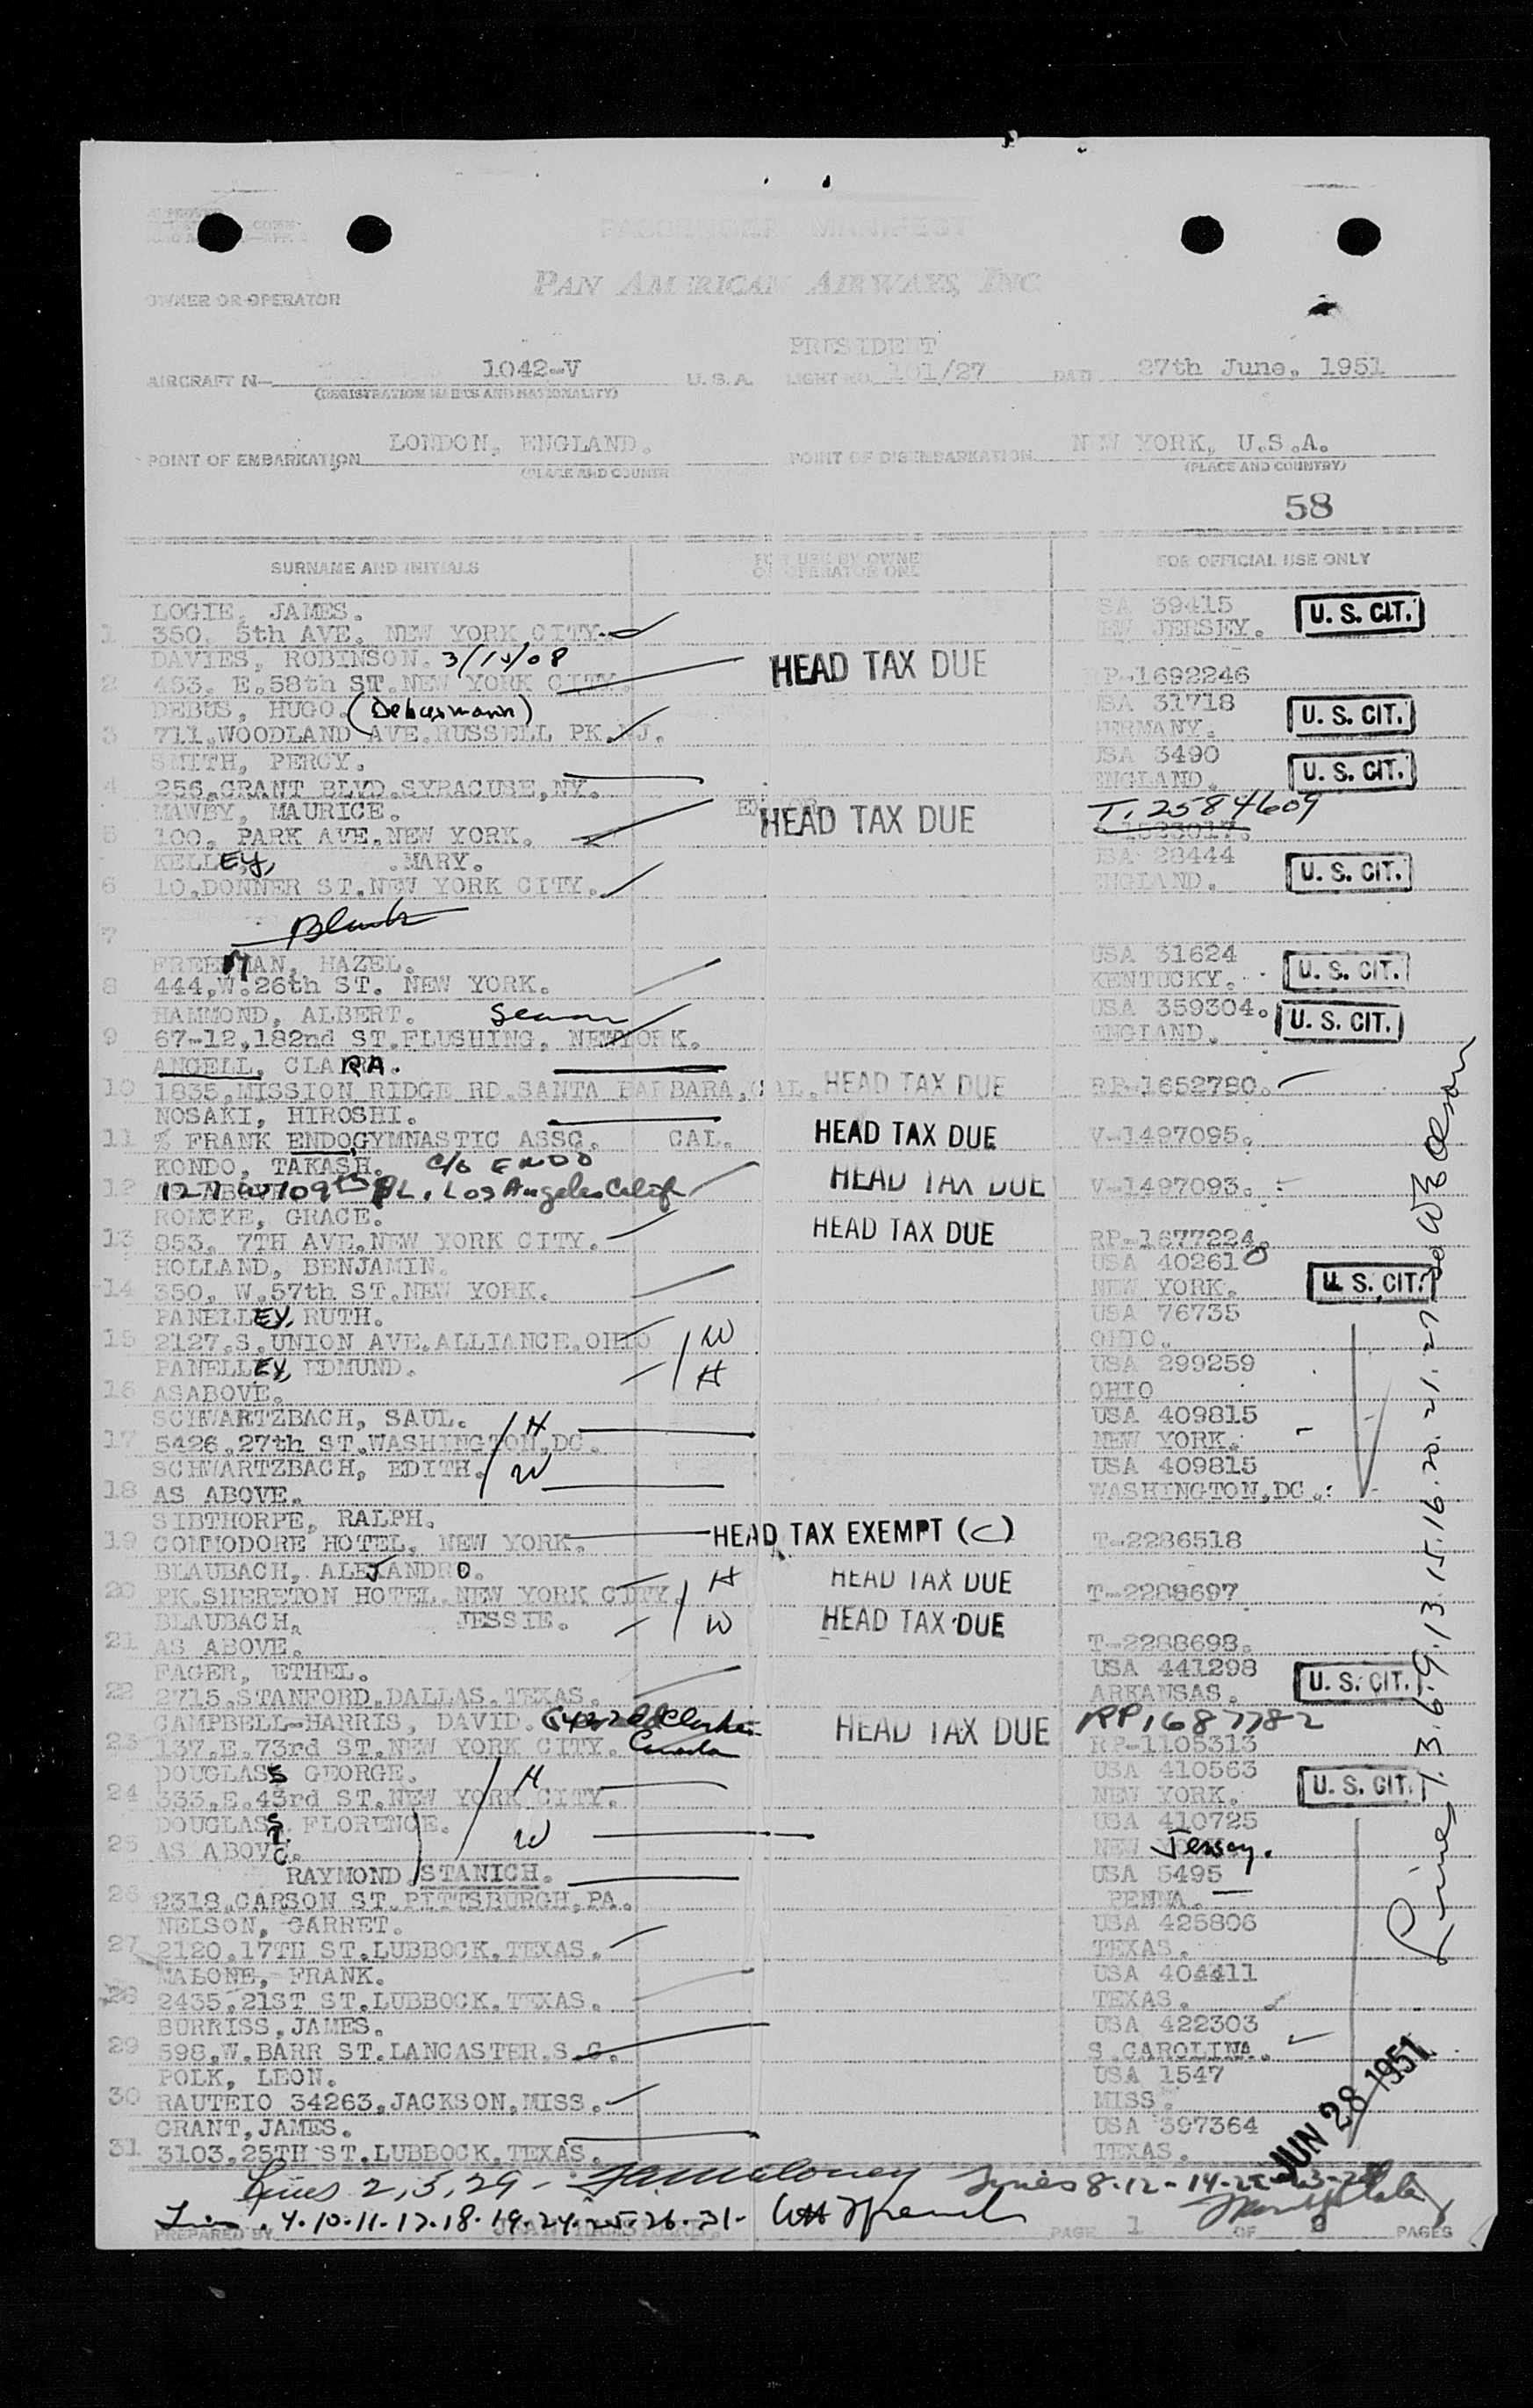 PASSENGER MANIFEST
PAN AMERICAN AIRWAYS, INC
OWNER OR OPERATOR
AIRCRAFT N- 1042-V U.S.A. PRESIDENT LIGHT NO. 101/27 DATE 27th June, 1951
(REGISTRATION MARKS AND NATIONALITY)
POINT OF EMBARKATION LONDON, ENGLAND. POINT OF DISEMBARKATION NEW YORK, U.S.A.
(PLACE AND COUNTR (PLACE AND COUNTRY)
58
SURNAME AND INITIALS FOR USE BY OWNER OR OPERATOR ONL FOR OFFICIAL USE ONLY
LOGIE, JAMES. USA 39415
1 350, 5th AVE, NEW YORK CITY. NEW JERSEY. U. S. CIT.
DAVIES, ROBINSON. HEAD TAX DUE
2 453. E.58th ST.NEW YORK CITY. RP-1692246
DEBUS, HUGO. (Debusmann) USA 31718
3 711.WOODLAND AVE.RUSSELL PK.NJ. GERMANY. U. S. CIT.
SMITH, PERCY. USA 3490
4 256.GRANT BLVD.SYRACUSE,NY. ENGLAND. U. S. CIT.
MAWBY, MAURICE. HEAD TAX DUE T.2584609
5 100, PARK AVE.NEW YORK.
KELLEY, .MARY. USA 28444
6 10.DONNER ST.NEW YORK CITY. ENGLAND. U. S. CIT.
7 Blank
FREEMAN, HAZEL. USA 31624
8 444,W.26th ST. NEW YORK. KENTUCKY. U. S. CIT.
HAMMOND, ALBERT. USA 359304.
9 67-12,182nd ST.FLUSHING, NEWYORK. ENGLAND. U. S. CIT.
ANGELL, CLARA.
10 1835,MISSION RIDGE RD.SANTA BARBARA,CAL. HEAD TAX DUE RP-1652780.
NOSAKI, HIROSHI.
11 % FRANK ENDOGYMNASTIC ASSC. CAL. HEAD TAX DUE V-1497095.
KONDO, TAKASH. C/o ENDO
12 127 W 109th PL, Los Angeles Calif HEAD TAX DUE V-1497093.
ROMCKE, GRACE.
13 853, 7TH AVE.NEW YORK CITY. HEAD TAX DUE RP-1677224.
HOLLAND, BENJAMIN. USA 402610
14 350, W.57th ST.NEW YORK. NEW YORK. U. S. CIT.
PANELLEY, RUTH. USA 76735
15 2127.S.UNION AVE.ALLIANCE.OHIO W OHIO.
PANELLEY, EDMUND. H USA 299259
16 ASABOVE. OHIO
SCHWARTZBACH, SAUL. H USA 409815
17 5426.27th ST.WASHINGTON,DC. NEW YORK.
SCHWARTZBACH, EDITH. W USA 409815
18 AS ABOVE. WASHINGTON,DC.
SIBTHORPE, RALPH. HEAD TAX EXEMPT (C)
19 COMMODORE HOTEL, NEW YORK. T-2286518
BLAUBACH, ALEJANDRO. H HEAD TAX DUE
20 PK.SHERETON HOTEL.NEW YORK CITY. T-2288697
BLAUBACH, JESSIE. W HEAD TAX DUE
21 AS ABOVE. T-2288698.
FAGER, ETHEL. USA 441298
22 2715.STANFORD.DALLAS.TEXAS. ARKANSAS. U. S. CIT.
CAMPBELL-HARRIS, DAVID. HEAD TAX DUE RP1687782
23 137.E.73rd ST.NEW YORK CITY. Canada RP-1105313
DOUGLASS GEORGE. H USA 410563
24 333.E.43rd ST.NEW YORK CITY. NEW YORK. U. S. CIT.
DOUGLASS, FLORENCE. W USA 410725
25 AS ABOVE. NEW Jersey.
RAYMOND STANICH. USA 5495
26 2318.CARSON ST.PITTSBURGH,PA. PENNA.
NELSON, GARRET. USA 425806
27 2120.17TH ST.LUBBOCK.TEXAS. TEXAS.
MALONE, FRANK. USA 404411
28 2435.21ST ST.LUBBOCK.TEXAS. TEXAS.
BURRISS,JAMES. USA 422303
29 598.W.BARR ST.LANCASTER.S.C. S.CAROLINA.
POLK, LEON. USA 1547
30 RAUTEIO 34263,JACKSON,MISS. MISS.
GRANT,JAMES. USA 397364
31 3103.25TH ST.LUBBOCK.TEXAS. TEXAS.
JUN 28 1951
Lines 2, 3, 29 -
4.10.11.17.18.19.24.25.26.31-
PREPARED BY PAGE 1 OF PAGES